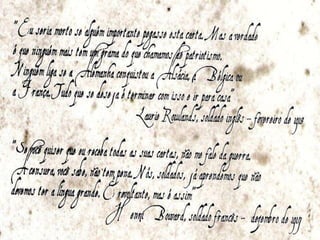 "Eu seria morto se alguém importante pegasse esta carta. Mas a verdade
é que ninguém mais tem um grama do que chamamos de patriotismo.
Ninguém liga se a Alemanha conquistou a Alsácia, a Bélgica ou
a França. Tudo que se deseja é terminar com isso e ir para casa"
Laurie Rowlands, soldado inglês – fevereiro de 1918
"Se você quiser que eu receba todas as suas cartas, não me fale da guerra.
A censura, você sabe, não tem pena. Nós, soldados, já aprendemos que não
devemos ter a língua grande. É revoltante, mas é assim"
Henri Bouvard, soldado francês – dezembro de